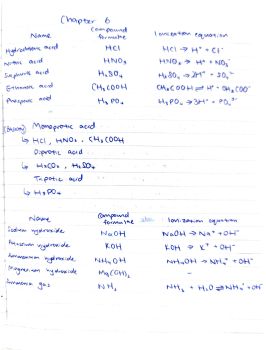 Chapter 6
Name compound formulae Ionization equation
Hydrochloric acid HCl HCl → H⁺ + Cl⁻
Nitric acid HNO₃ HNO₃ → H⁺ + NO₃⁻
Sulphuric acid H₂SO₄ H₂SO₄ → 2H⁺ + SO₄²⁻
Ethanoic acid CH₃COOH CH₃COOH ⇌ H⁺ + CH₃COO⁻
acid H₃PO₄ H₃PO₄ → 3H⁺ + PO₄³⁻
Monoprotic acid
↳ HCl, HNO₃, CH₃COOH
Diprotic acid
↳ H₂CO₃, H₂SO₄
acid
↳ H₃PO₄
Name compound formulae Ionization equation
Sodium hydroxide NaOH NaOH → Na⁺ + OH⁻
Potassium hydroxide KOH KOH → K⁺ + OH⁻
Ammonium hydroxide NH₄OH NH₄OH → NH₄⁺ + OH⁻
Magnesium hydroxide Mg(OH)₂ -
Ammonia gas NH₃ NH₃ + H₂O ⇌ NH₄⁺ + OH⁻